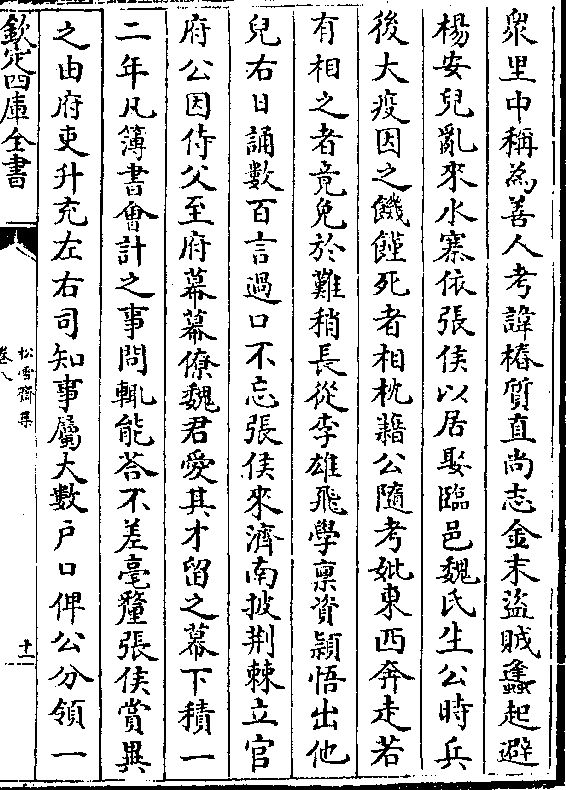 衆里中稱為善人考諱椿質直尚志金末盜賊蠭起避
楊安兒亂來水寨依張侯以居娶臨邑魏氏生公時兵
後大疫因之饑饉死者相枕藉公隨考妣東西奔走若
有相之者竟免於難稍長從李雄飛學禀資穎悟出他
兒右日誦數百言過口不忘張侯來濟南披荆棘立官
府公因侍父至府幕幕僚魏君愛其才留之幕下積一
二年凡簿書會計之事問輒能荅不差毫釐張侯賞異
之由府吏升充左右司知事屬大數戶口俾公分領一
欽定四庫全書
松雪齋集
卷八
十一